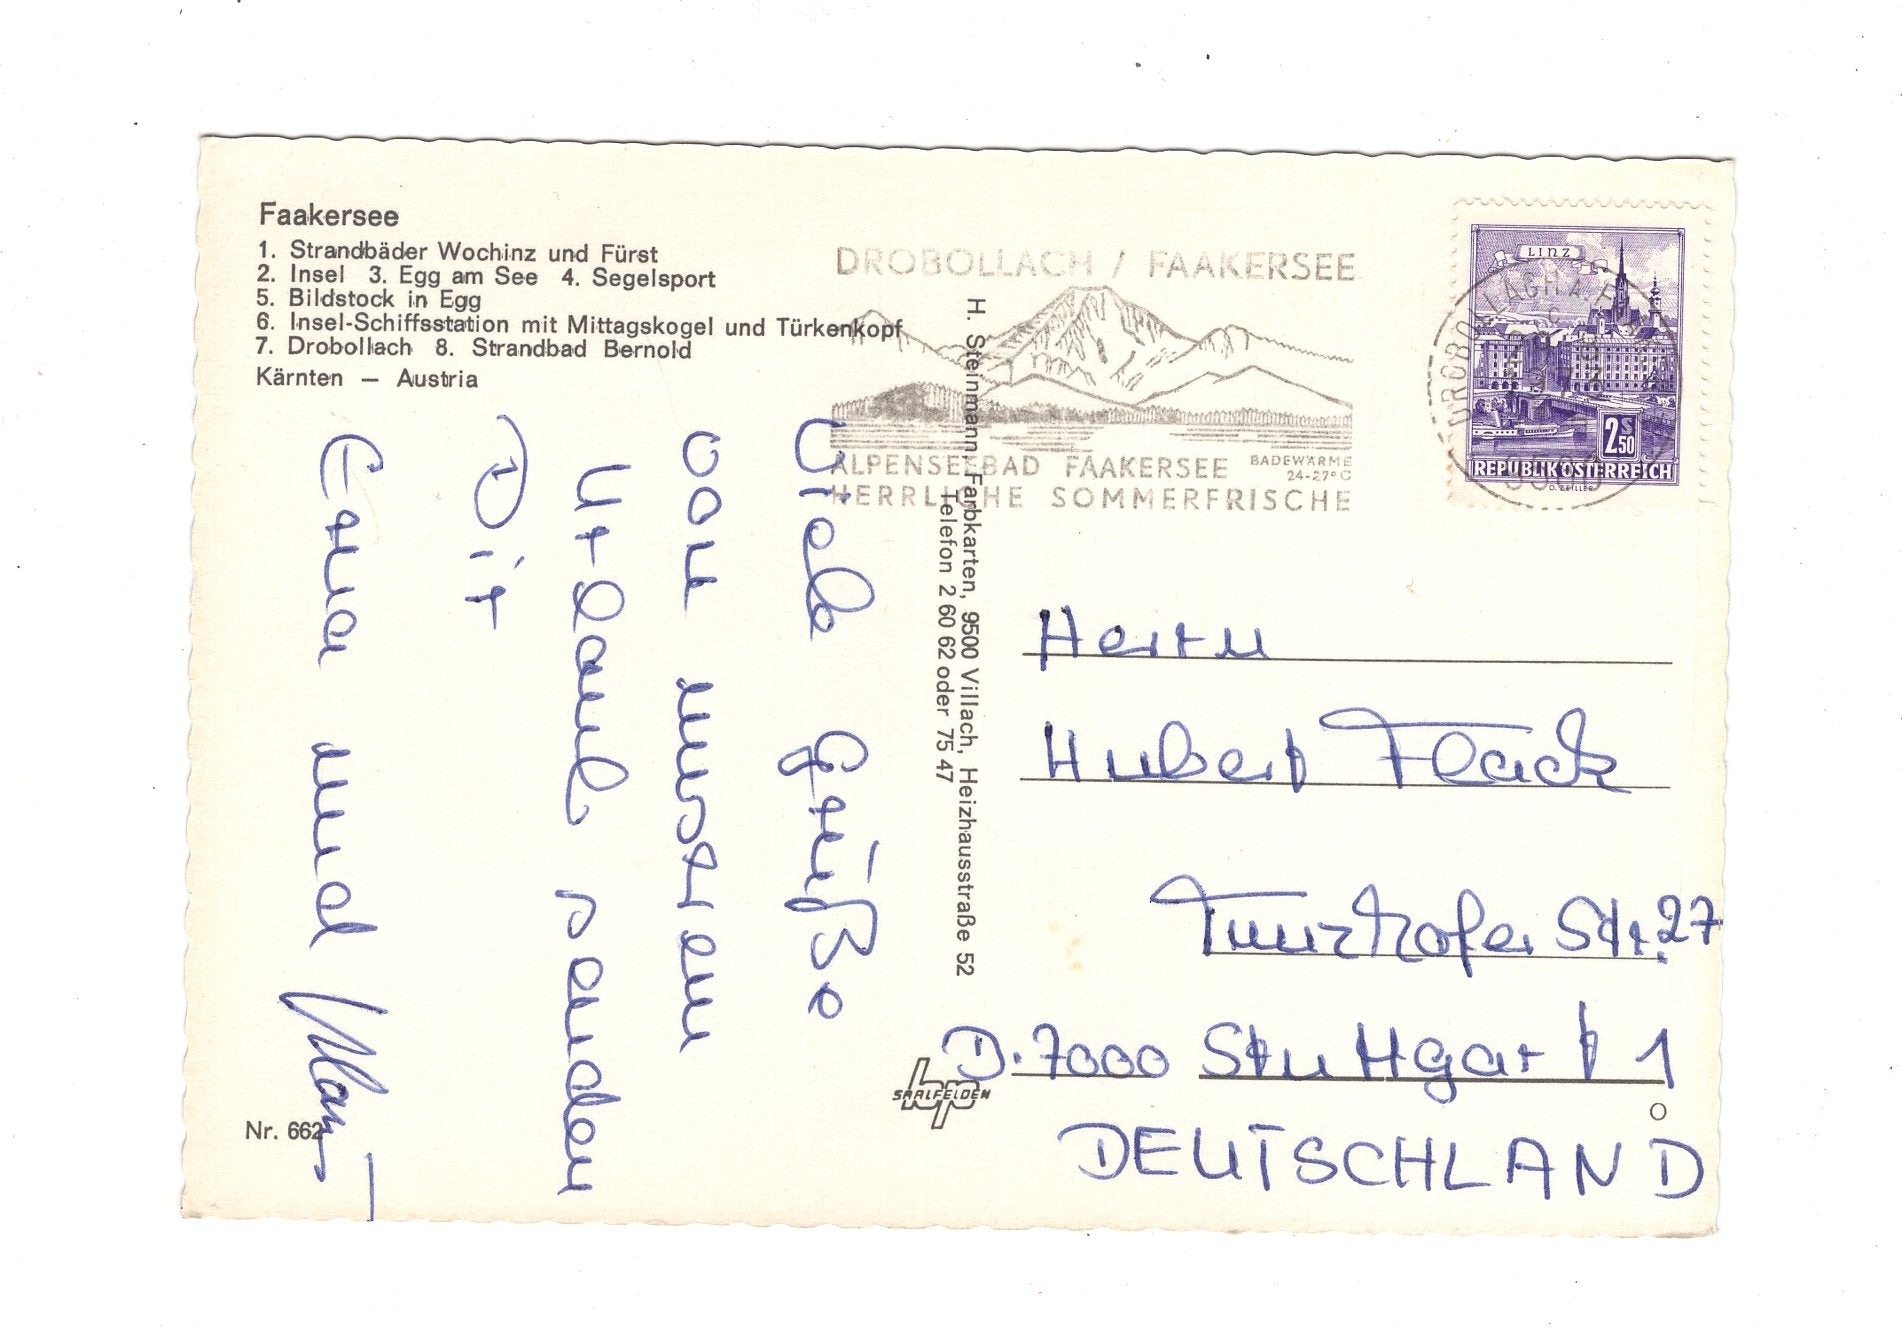 Faakersee
1. Strandbäder Wochinz und Fürst
2. Insel 3. Egg am See 4. Segelsport
5. Bildstock in Egg
6. Insel-Schiffsstation mit Mittagskogel und Türkenkopf
7. Drobollach 8. Strandbad Bernold
Kärnten – Austria
DROBOLLACH / FAAKERSEE
ALPENSEEBAD FAAKERSEE
BADEWÄRME
24-27°C
HERRLICHE SOMMERFRISCHE
LINZ
2 S 50
REPUBLIK ÖSTERREICH
O. ZEILLER
DROBOLLACH A.
H. Steinmann, Farbkarten, 9500 Villach, Heizhausstraße 52
Telefon 2 60 62 oder 75 47
Viele Grüße
von unserem
Urlaub senden
Dir
Erna und
Herrn
Hubert Flack
Turzhofer Str. 27
D-7000 Stuttgart 1
DEUTSCHLAND
SAALFELDEN
Nr. 662